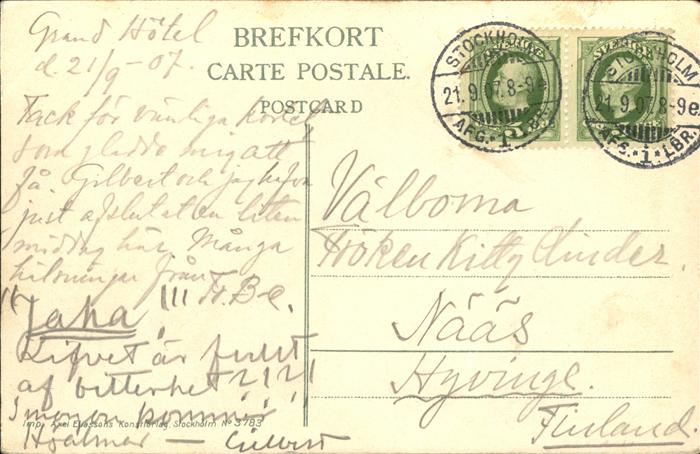 Grand Hôtel
d. 21/9 - 07.
BREFKORT
CARTE POSTALE.
POSTCARD
STOCKHOLM
21.9.07.8-9e
AFG. 1 LBR.
SVERIGE
STOCKHOLM
21.9.07.8-9e
AFG. 1 LBR.
Tack för vänliga kortet
som gladde mig att
få. Gilbert och jag hafva
just afslutat en liten
middag här. Många
hälsningar från
Fr. B-e.
"Jaha" !!!
Lifvet är fullt
af bitterhet?!?!
kommer
Hjalmar — Gilbert
Imp. Axel Eliassons Konstförlag, Stockholm No 3783
Välborna
Fröken Kitty Linder.
Nääs
Hyvinge.
Finland.